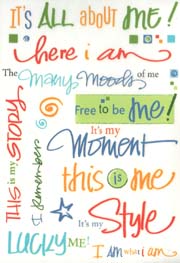 It's ALL about me!
here i am
The Many Moods of me
Free to be me!
THIS is my STORY
I Remember
It's my
Moment
this is me
It's my
Style
LUCKY ME!
I am what i am